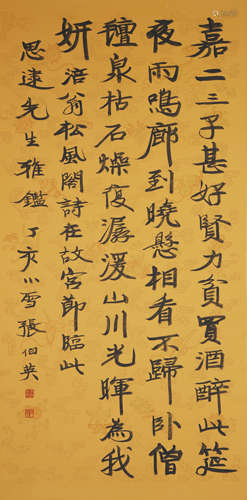 嘉二三子甚好賢力貧買酒醉此筵
夜雨鳴廊到曉懸相看不歸臥僧
氊泉枯石燥復潺湲山川光暉為我
妍 涪翁松風閣詩在故宮節臨此
思逮先生雅鑑 丁亥小雪張伯英